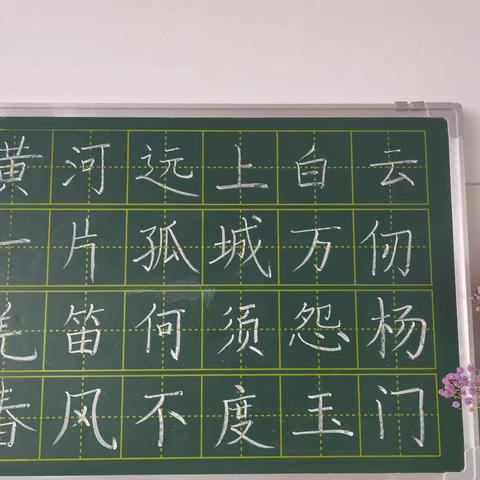 黄河远上白云
一片孤城万仞
羌笛何须怨杨
春风不度玉门